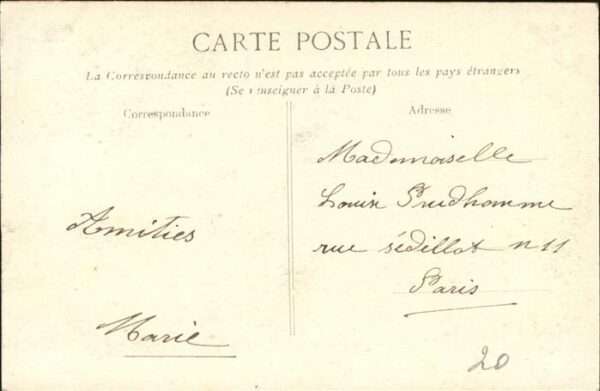 CARTE POSTALE
La Correspondance au recto n'est pas acceptée par tous les pays étrangers
(Se renseigner à la Poste)
Correspondance
Adresse
Amitiés
Marie
Mademoiselle
Louise Prudhomme
rue sédillot n 11
Paris
20